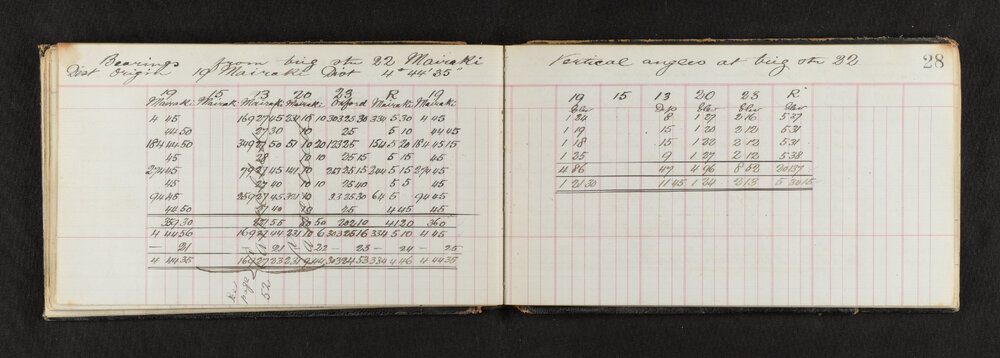 Bearings from trig stn 22 Mairaki
Dist Origin 19 Mairaki Dist 4° 44' 35"
19 15 13 20 23 R 19
Mairaki Mairaki Mairaki Mairaki Oxford Mairaki Mairaki
4 45 169 27 45 231 10 10 303 25 30 334 5 30 4 45
44 50 27 30 10 25 5 10 44 45
184 44 50 349 27 50 51 10 20 123 25 154 5 20 184 45 15
45 28 10 10 25 15 5 15 45
274 45 79 27 45 141 10 213 25 15 244 5 15 274 45
45 27 40 10 10 25 40 5 5 45
94 45 259 27 45 321 10 33 25 30 64 5 94 45
44 50 27 40 10 25 4 45 45
357 30 27 55 50 202 10 41 20 360
4 44 56 169 27 44 231 10 6 303 25 16 334 5 10 4 45
— 21 — 21 — 22 — 23 — 24 — 25
4 44 35 169 27 23 231 9 44 303 24 53 334 4 46 4 44 35
See page 52
Vertical angles at trig stn 22
28
19 15 13 20 23 R
Elev Dep Elev Elev Elev
1 24 8 1 27 2 16 5 37
1 19 15 1 20 2 12 5 31
1 18 15 1 22 2 12 5 31
1 25 9 1 27 2 12 5 38
4 86 47 4 96 8 52 20 137
1 21 30 11 45 1 24 2 13 5 30 15